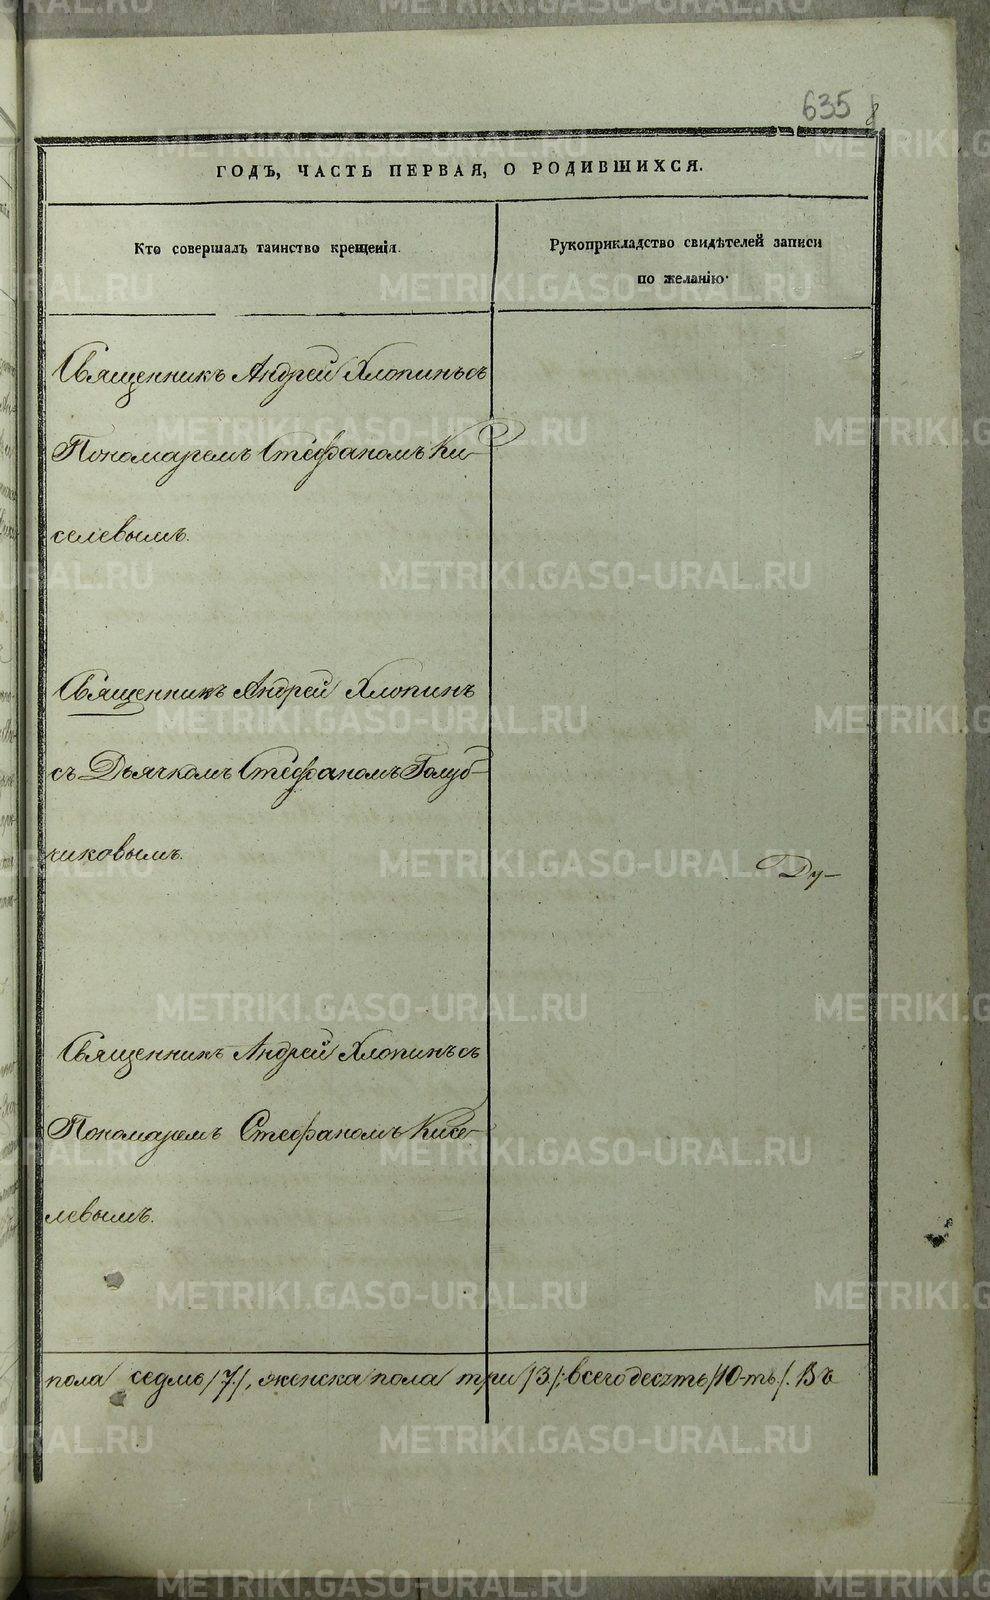 635 8
ГОДЪ, ЧАСТЬ ПЕРВАЯ, О РОДИВШИХСЯ.
Кто совершалъ таинство крещенія.
Рукоприкладство свидѣтелей записи
по желанію.
Священникъ Андрей Хлопинъ съ
Пономаремъ Стефаномъ Ки-
селевымъ.
Священникъ Андрей Хлопинъ
съ Дьячкомъ Стефаномъ Голуб-
чиковымъ.
Ду-
Священникъ Андрей Хлопинъ съ
Пономаремъ Стефаномъ Кисе-
левымъ.
пола седмь /7./, женска пола три /3/; всего десять /10-ть/. Въ
METRIKI.GASO-URAL.RU